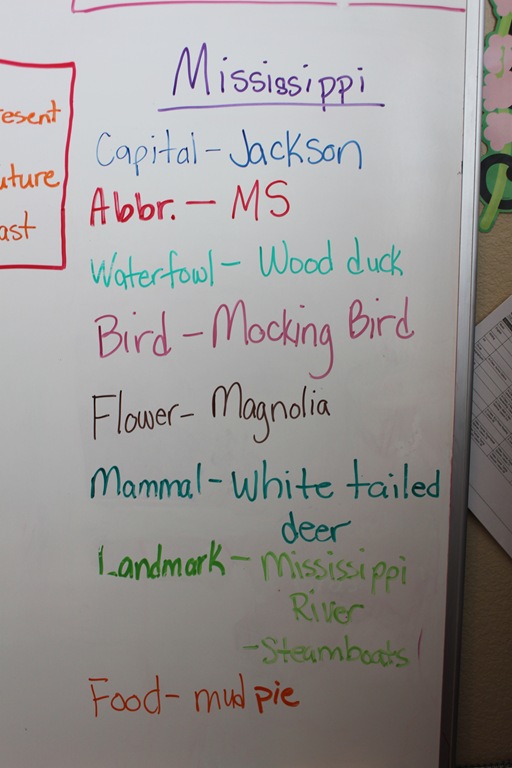 Mississippi
Capital - Jackson
Abbr. - MS
Waterfowl - Wood duck
Bird - Mocking Bird
Flower - Magnolia
Mammal - White tailed
deer
Landmark - Mississippi
River
- Steamboats
Food - mud pie
esent
uture
ast